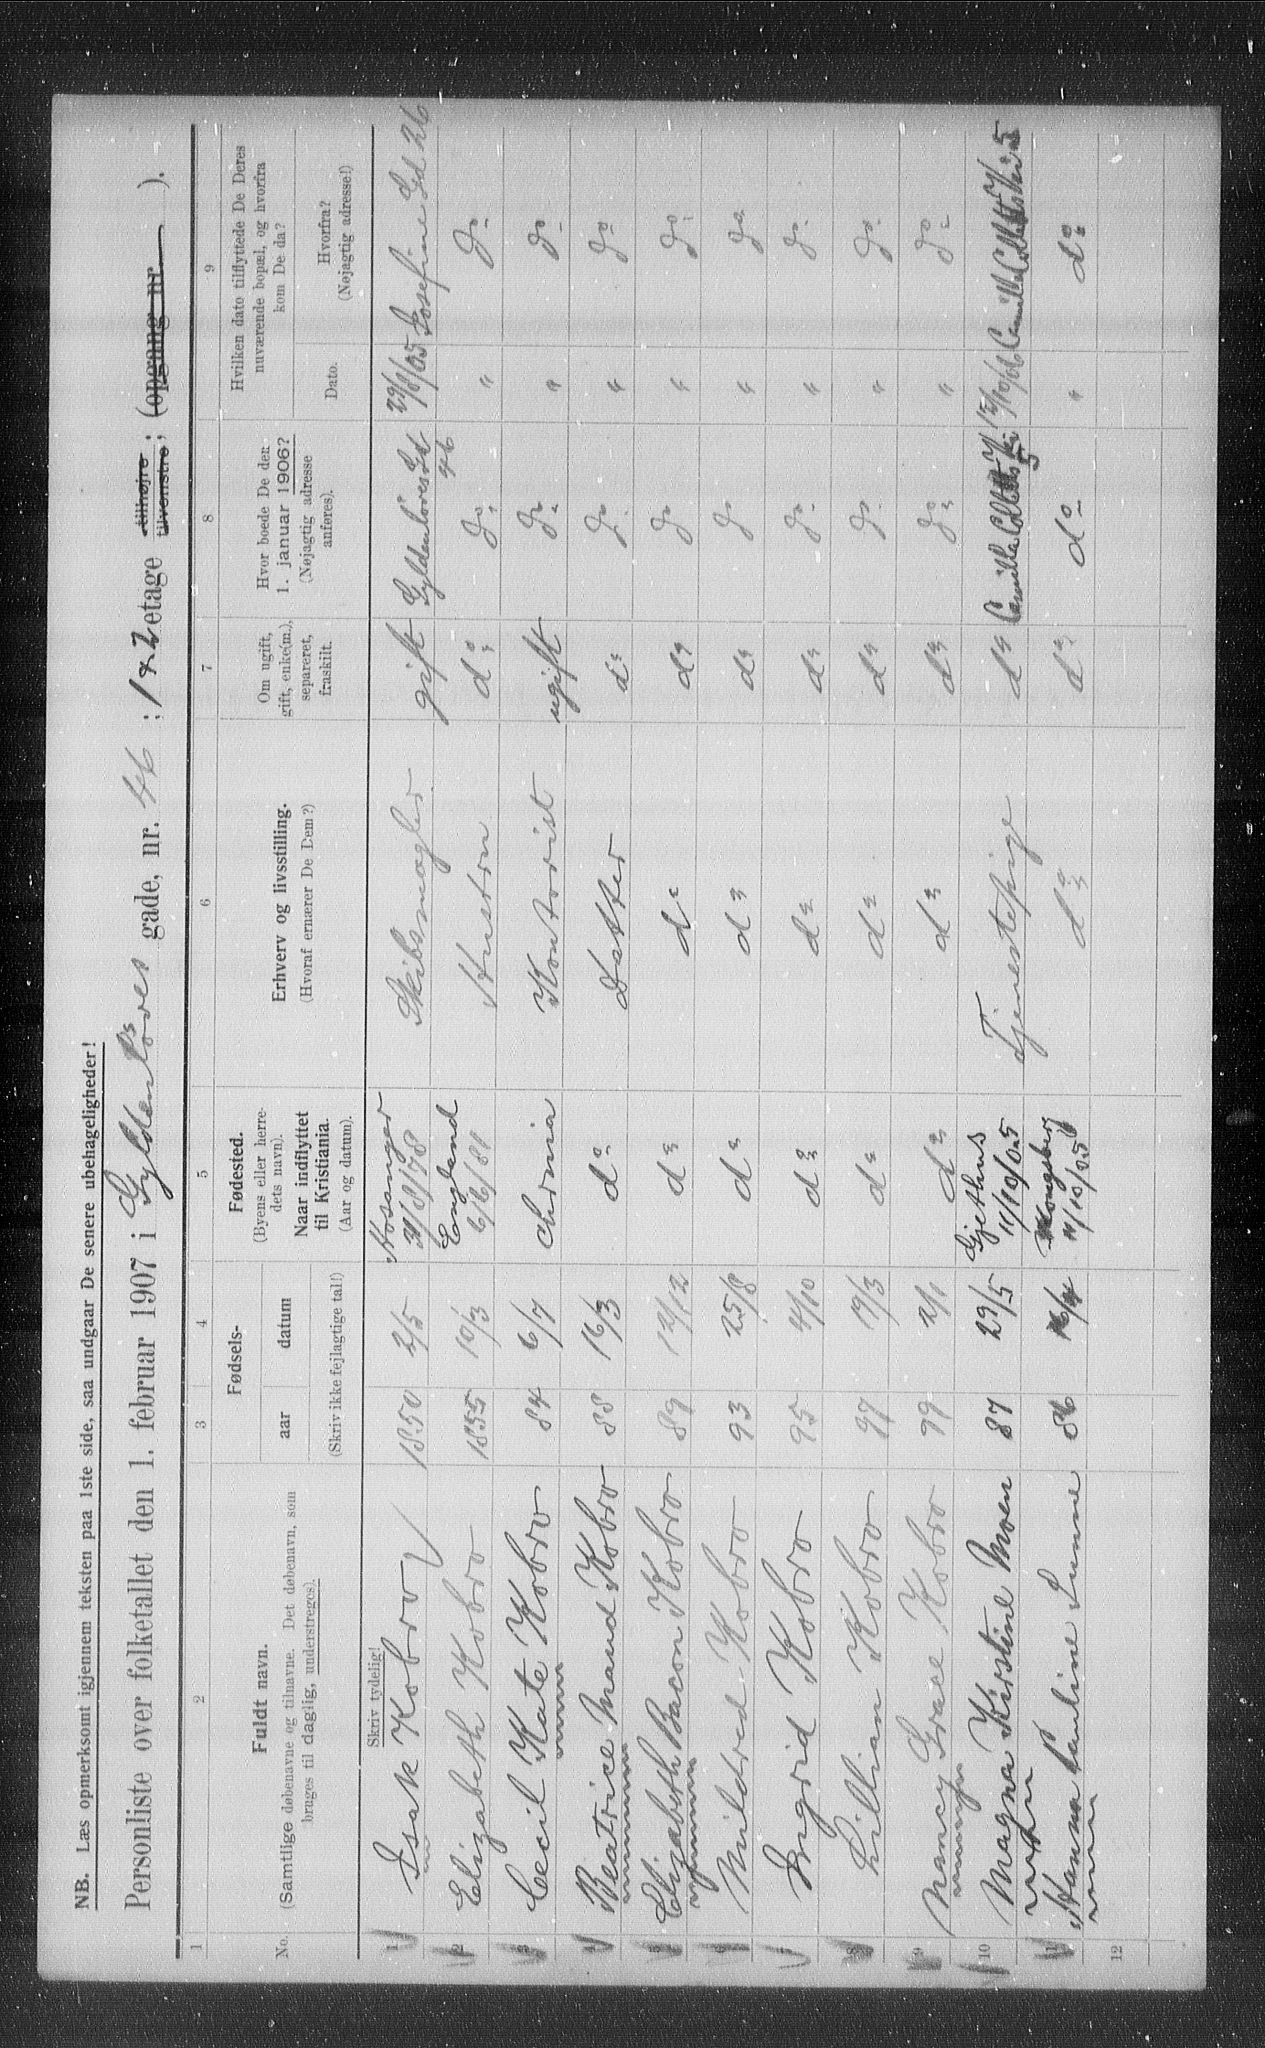 NB. Læs opmerksomt igjennem teksten paa 1ste side, saa undgaar De senere ubehageligheder!
Personliste over folketallet den 1. februar 1907 i Gyldenløves gade, nr. 46 ; 1 & 2 etage tilhøjre tilvenstre ; (opgang nr ).
1 2 3 4 5 6 7 8 9
No. Fuldt navn. (Samtlige døbenavne og tilnavne. Det døbenavn, som bruges til daglig, understreges).
Skriv tydelig!
Fødsels- aar datum (Skriv ikke fejlagtige tal!)
Fødested. (Byens eller herredets navn). Naar indflyttet til Kristiania. (Aar og datum).
Erhverv og livsstilling. (Hvoraf ernærer De Dem?)
Om ugift, gift, enke(m.), separeret, fraskilt.
Hvor boede De den 1. januar 1906? (Nøjagtig adresse anføres).
Hvilken dato tilflyttede De Deres nuværende bopæl, og hvorfra kom De da?
Dato. Hvorfra? (Nøjagtig adresse!)
1 Isak Kobro 1850 2/5 Hosanger /8/78 Skibsmægler gift Gyldenløves Gd 46 29/8/05 Josefine Gd 26
2 Elizabeth Kobro 1855 10/3 England 6/6/81 Hustru do do " do
3 Cecil Kate Kobro 84 6/7 Chrnia Kontorist ugift do " do
4 Beatrice Maud Kobro 88 16/3 do Datter do do " do
5 Elizabeth Bacon Kobro 89 12/12 do do do do " do
6 Mildred Kobro 93 25/8 do do do do " do
7 Ingrid Kobro 95 4/10 do do do do " do
8 Lillian Kobro 97 19/3 do do do do " do
9 Nancy Grace Kobro 99 2/1 do do do do " do
10 Magna Kirstine Moen 87 29/5 Gjethus 11/10/05 Tjenestepige do Camilla Colletts V. 5 15/10/06 Camilla Colletts V. 5
11 Hanna Pauline Lunne 86 Kongsberg /10/05 do do do " do
12